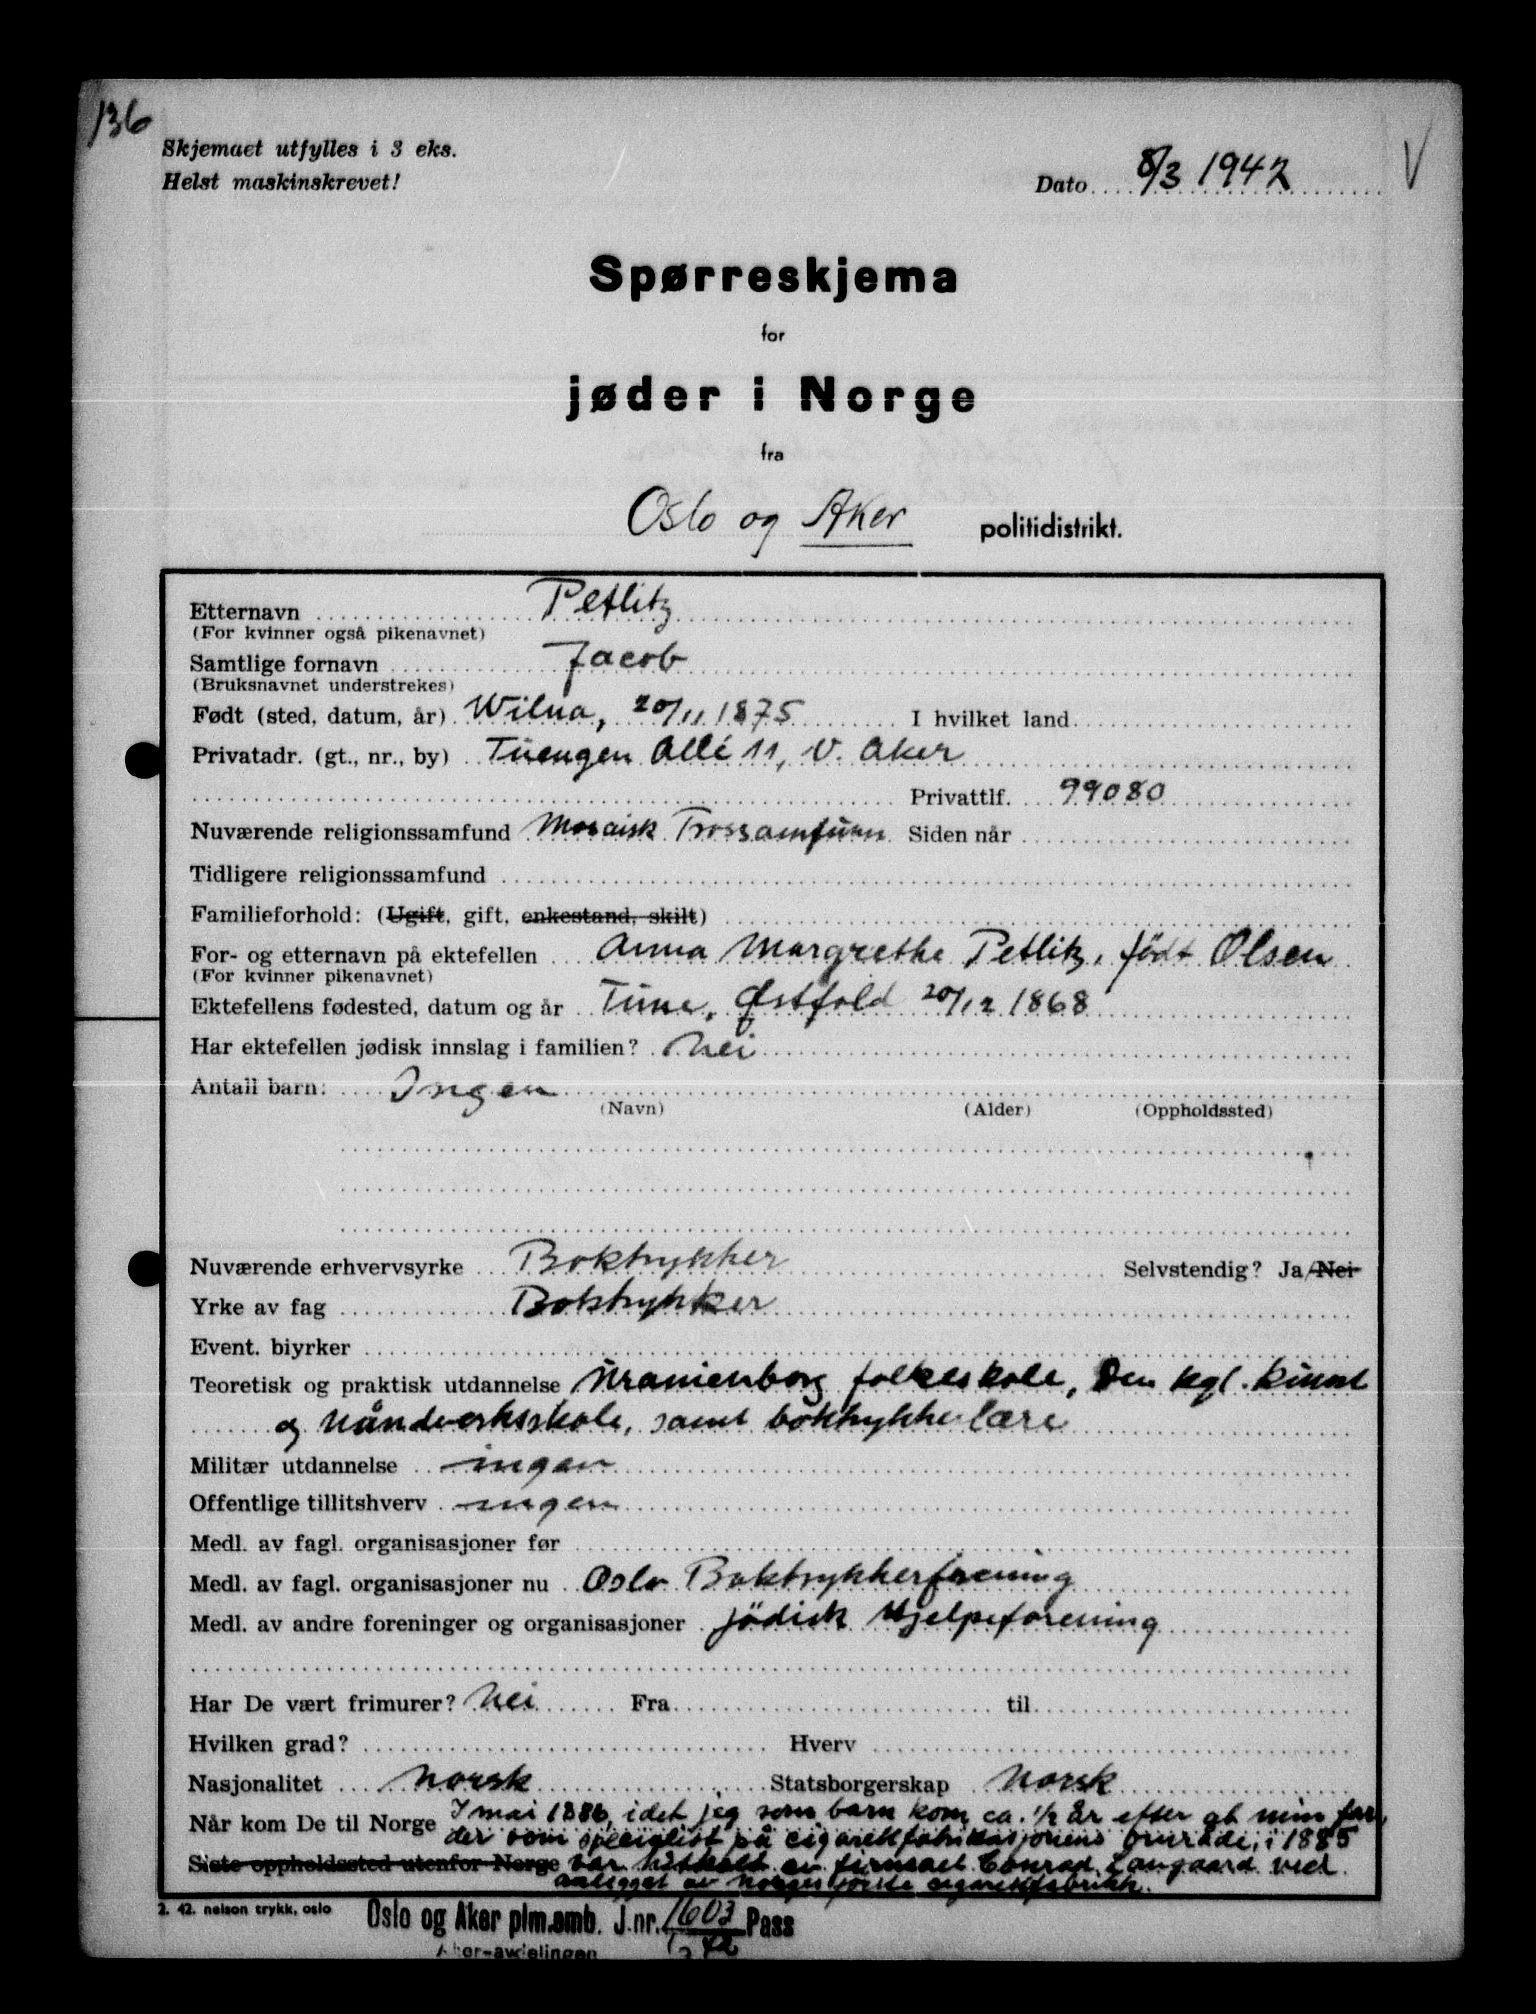 136
Skjemaet utfylles i 3 eks.
Helst maskinskrevet!
Dato 8/3 1942 V
Spørreskjema
for
jøder i Norge
fra
Oslo og Aker politidistrikt.
Etternavn Petlitz
(For kvinner også pikenavnet)
Samtlige fornavn Jacob
(Bruksnavnet understrekes)
Født (sted, datum, år) Wilna, 20/11 1875 I hvilket land
Privatadr. (gt., nr., by) Tuengen Allé 11, V. Aker
Privattlf. 99080
Nuværende religionssamfund Mosaisk Trossamfunn Siden når
Tidligere religionssamfund
Familieforhold: (Ugift, gift, enkestand, skilt)
For- og etternavn på ektefellen Anna Margrethe Petlitz, født Olsen
(For kvinner pikenavnet)
Ektefellens fødested, datum og år Tune, Østfold 20/12 1868
Har ektefellen jødisk innslag i familien? Nei
Antall barn: Ingen
(Navn) (Alder) (Oppholdssted)
Nuværende erhvervsyrke Boktrykker Selvstendig? Ja/Nei
Yrke av fag Boktrykker
Event. biyrker
Teoretisk og praktisk utdannelse Uranienborg folkeskole, Den kgl. kunst
og håndverksskole, samt boktrykkerlære
Militær utdannelse ingen
Offentlige tillitshverv ingen
Medl. av fagl. organisasjoner før
Medl. av fagl. organisasjoner nu Oslo Boktrykkerforening
Medl. av andre foreninger og organisasjoner Jödisk Hjelpeforening
Har De vært frimurer? Nei Fra til
Hvilken grad? Hverv
Nasjonalitet Norsk Statsborgerskap Norsk
Når kom De til Norge I mai 1886, idet jeg som barn kom ca. 1/2 år efter at min far,
der som specialist på cigarettfabrikasjonens område, i 1885
Siste oppholdssted utenfor Norge var hitkalt av firmaet Conrad Langaard ved
anlegget av Norges første cigarettfabrikk.
2. 42. nelson trykk, oslo
Oslo og Aker plm.emb. J.nr. 1603 Pass
Aker-avdelingen 42